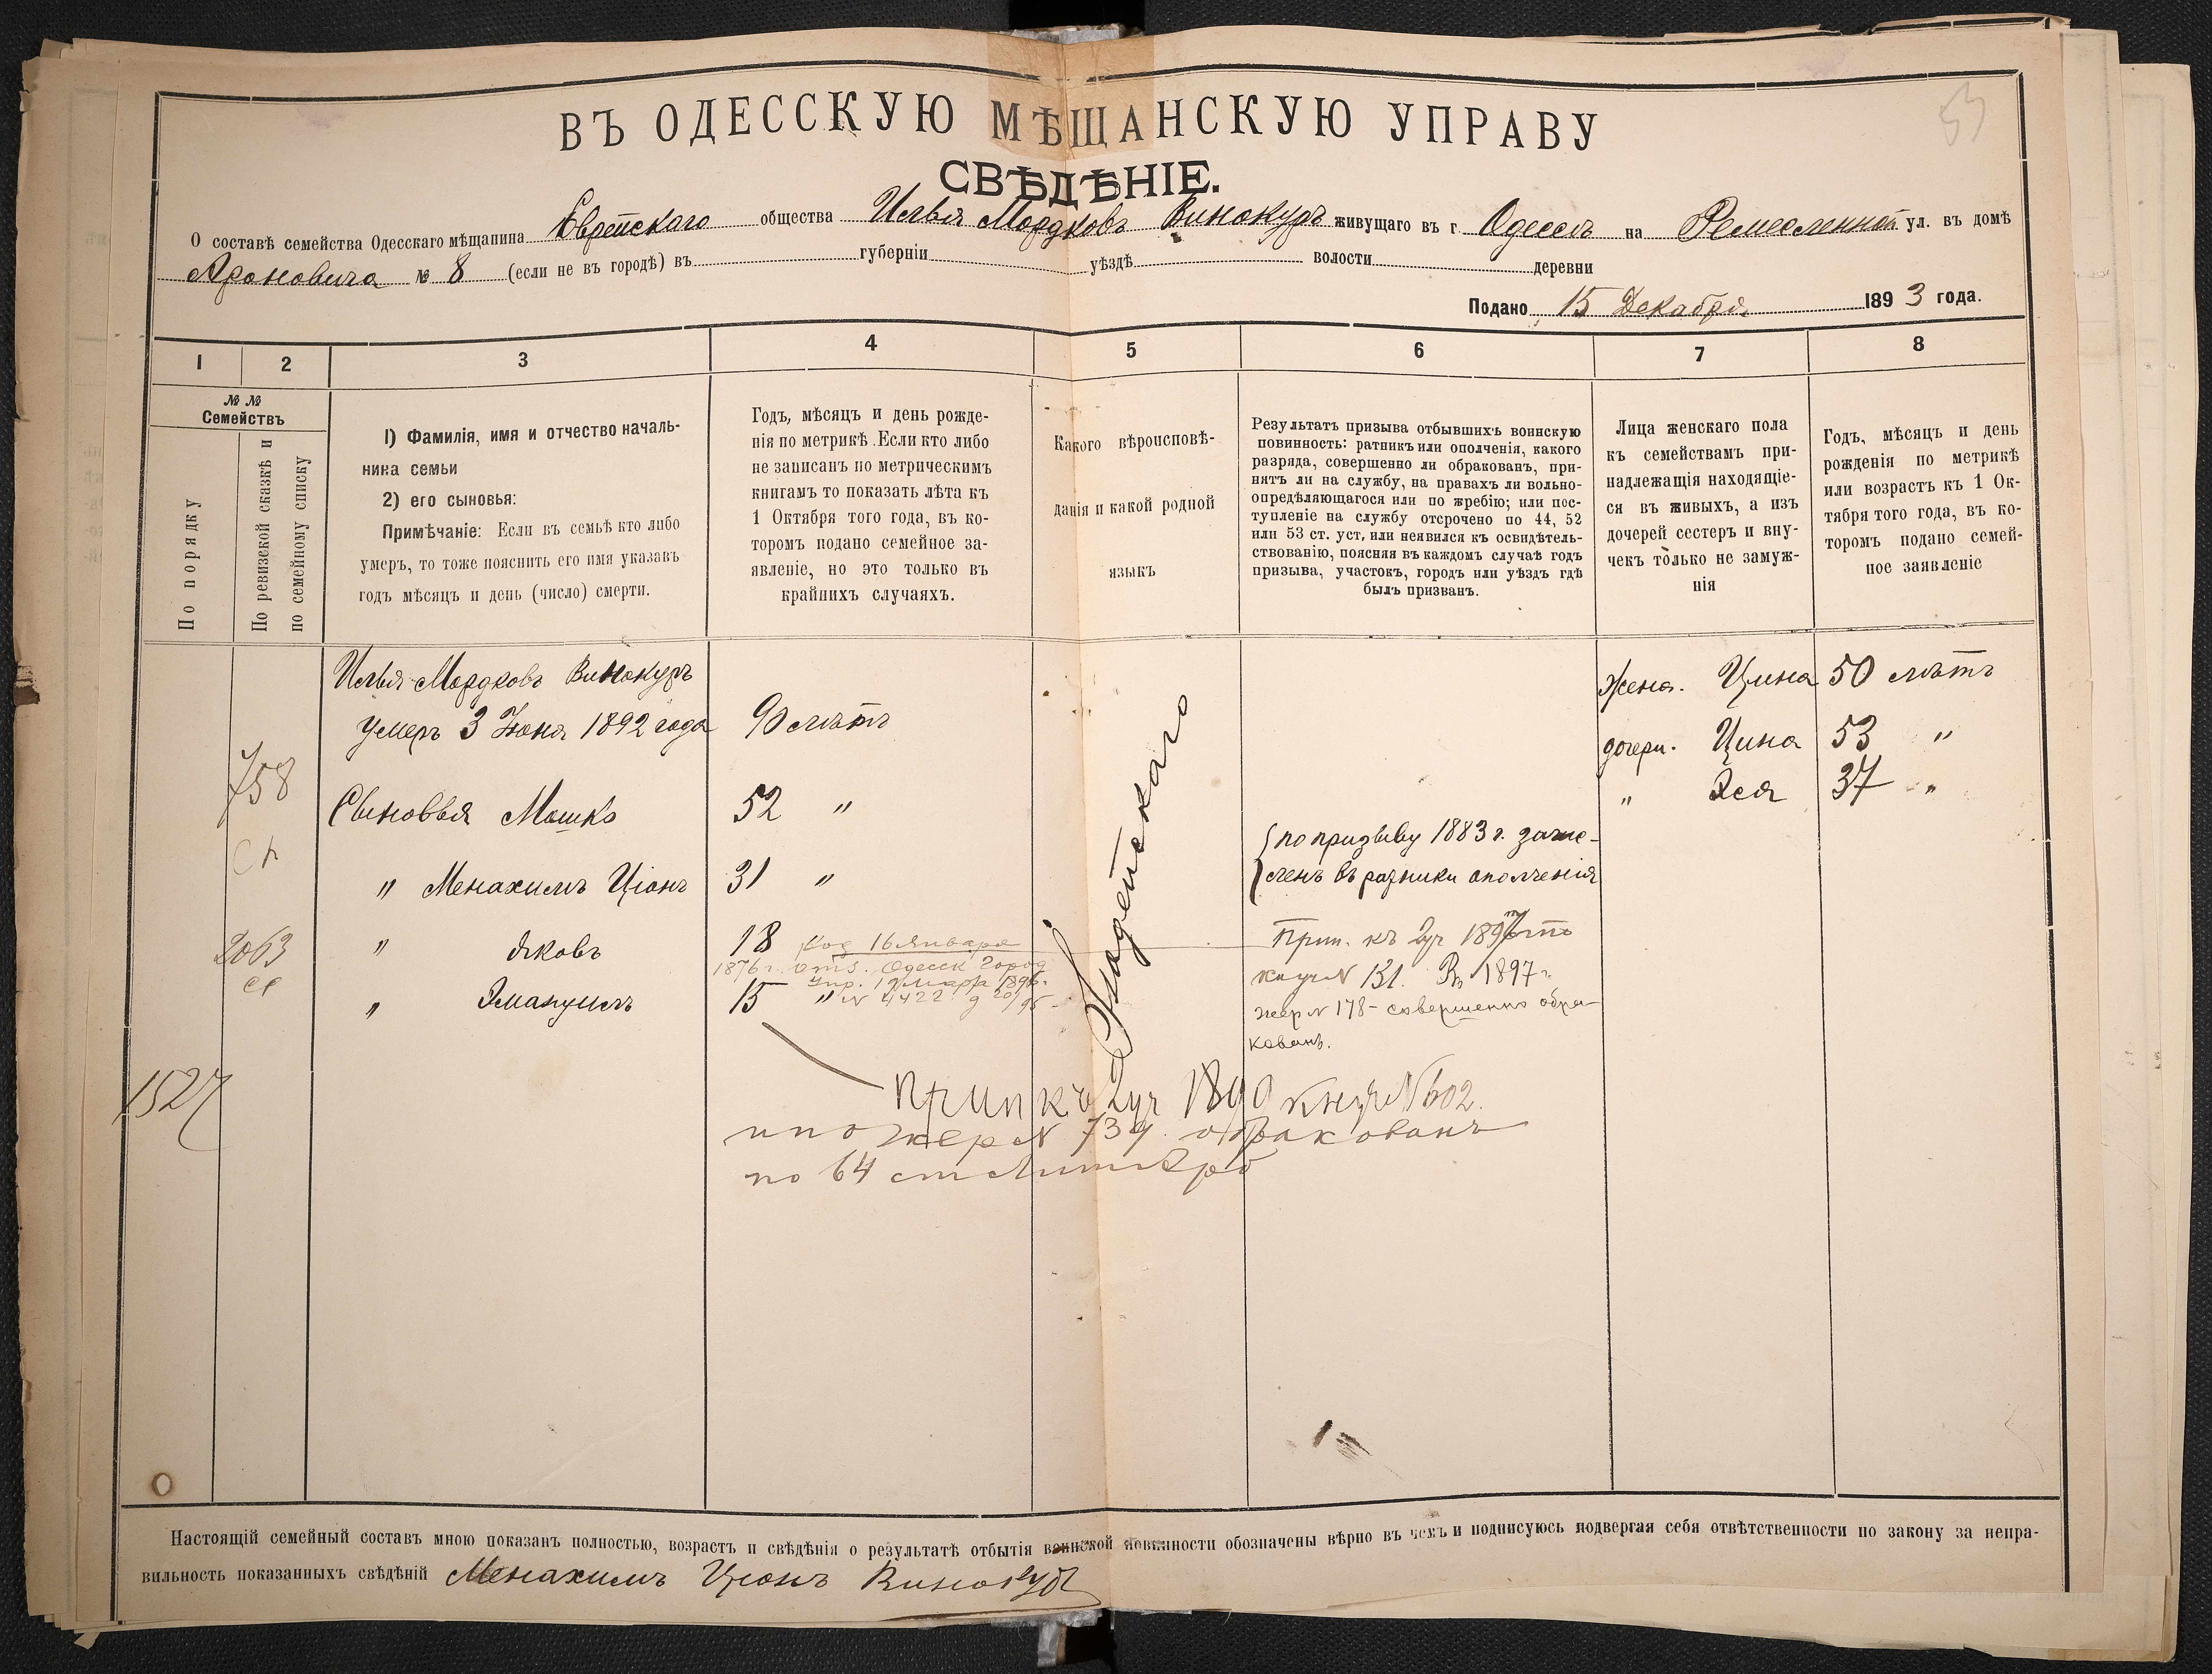 53
ВЪ ОДЕССКУЮ МѢЩАНСКУЮ УПРАВУ
СВѢДѢНІЕ.
О составѣ семейства Одесскаго мѣщанина Еврейскаго общества Илья Мордковъ Винокуръ живущаго въ г. Одессѣ на Ремесленной ул. въ домѣ
Ароновича № 8 (если не въ городѣ) въ губерніи уѣздѣ волости деревни
Подано 15 Декабря 1893 года.
1 2 3 4 5 6 7 8
№ №
Семействъ
По порядку
По ревизской сказкѣ и
по семейному списку
1) Фамилія, имя и отчество началь-
ника семьи
2) его сыновья:
Примѣчаніе: Если въ семьѣ кто либо
умеръ, то тоже пояснить его имя указавъ
годъ мѣсяцъ и день (число) смерти.
Годъ, мѣсяцъ и день рожде-
нія по метрикѣ. Если кто либо
не записанъ по метрическимъ
книгамъ то показать лѣта къ
1 Октября того года, въ ко-
торомъ подано семейное за-
явленіе, но это только въ
крайнихъ случаяхъ.
Какого вѣроисповѣ-
данія и какой родной
языкъ
Результатъ призыва отбывшихъ воинскую
повинность: ратникъ или ополченія, какого
разряда, совершенно ли обракованъ, при-
нятъ ли на службу, на правахъ ли вольно-
опредѣляющагося или по жребію; или пос-
тупленіе на службу отсрочено по 44, 52
или 53 ст. уст, или неявился къ освидѣтель-
ствованію, поясняя въ каждомъ случаѣ годъ
призыва, участокъ, городъ или уѣздъ гдѣ
былъ призванъ.
Лица женскаго пола
къ семействамъ при-
надлежащія находящіе-
ся въ живыхъ, а изъ
дочерей сестеръ и вну-
чекъ только не замуж-
нія
Годъ, мѣсяцъ и день
рожденія по метрикѣ
или возрастъ къ 1 Ок-
тября того года, въ ко-
торомъ подано семей-
ное заявленіе
Илья Мордковъ Винокуръ
умеръ 3 Іюня 1892 года 90 лѣтъ
жена. Цина 50 лѣтъ
дочери. Цина 53 "
" Эся 37 "
758
Сыновья Мошко 52 "
" Менахимъ Ціонъ 31 "
по призыву 1883 г. зачис-
ленъ въ ратники ополченія
Іудейскаго
2063
" Яковъ 18 Род 16 Января
1876 г. отз. Одесск Город
Упр. 19 Март 1896 г.
" Эмануилъ 15 " № 4422
Прип. къ 2 уч 189
№ 131. Въ 1897 г.
жер № 178 - совершенно обра-
кованъ.
1527
Прип къ 2 уч 1890 № 602.
и по жер № 739 обракованъ
по 64 ст
Настоящій семейный составъ мною показанъ полностью, возрастъ и свѣдѣнія о результатѣ отбытія воинской повинности обозначены вѣрно въ чемъ и подписуюсь подвергая себя отвѣтственности по закону за непра-
вильность показанныхъ свѣдѣній Менахимъ Ціонъ Винокуръ